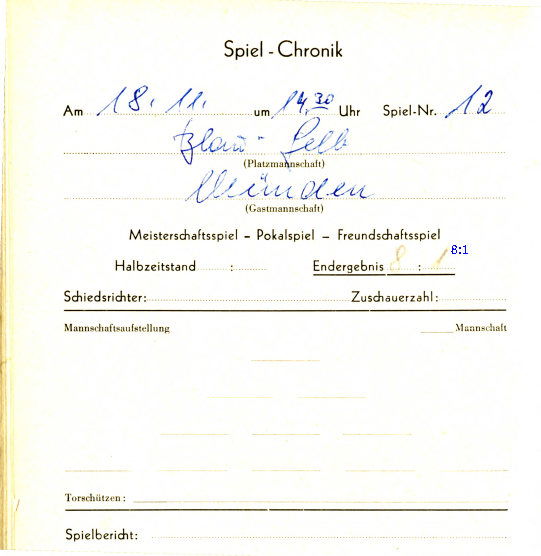 Spiel - Chronik
Am 18. 11. um 14.30 Uhr Spiel-Nr. 12
Blau - Gelb
(Platzmannschaft)
Münden
(Gastmannschaft)
Meisterschaftsspiel – Pokalspiel – Freundschaftsspiel
Halbzeitstand : Endergebnis 8 : 1 8:1
Schiedsrichter: Zuschauerzahl:
Mannschaftsaufstellung Mannschaft
Torschützen:
Spielbericht: